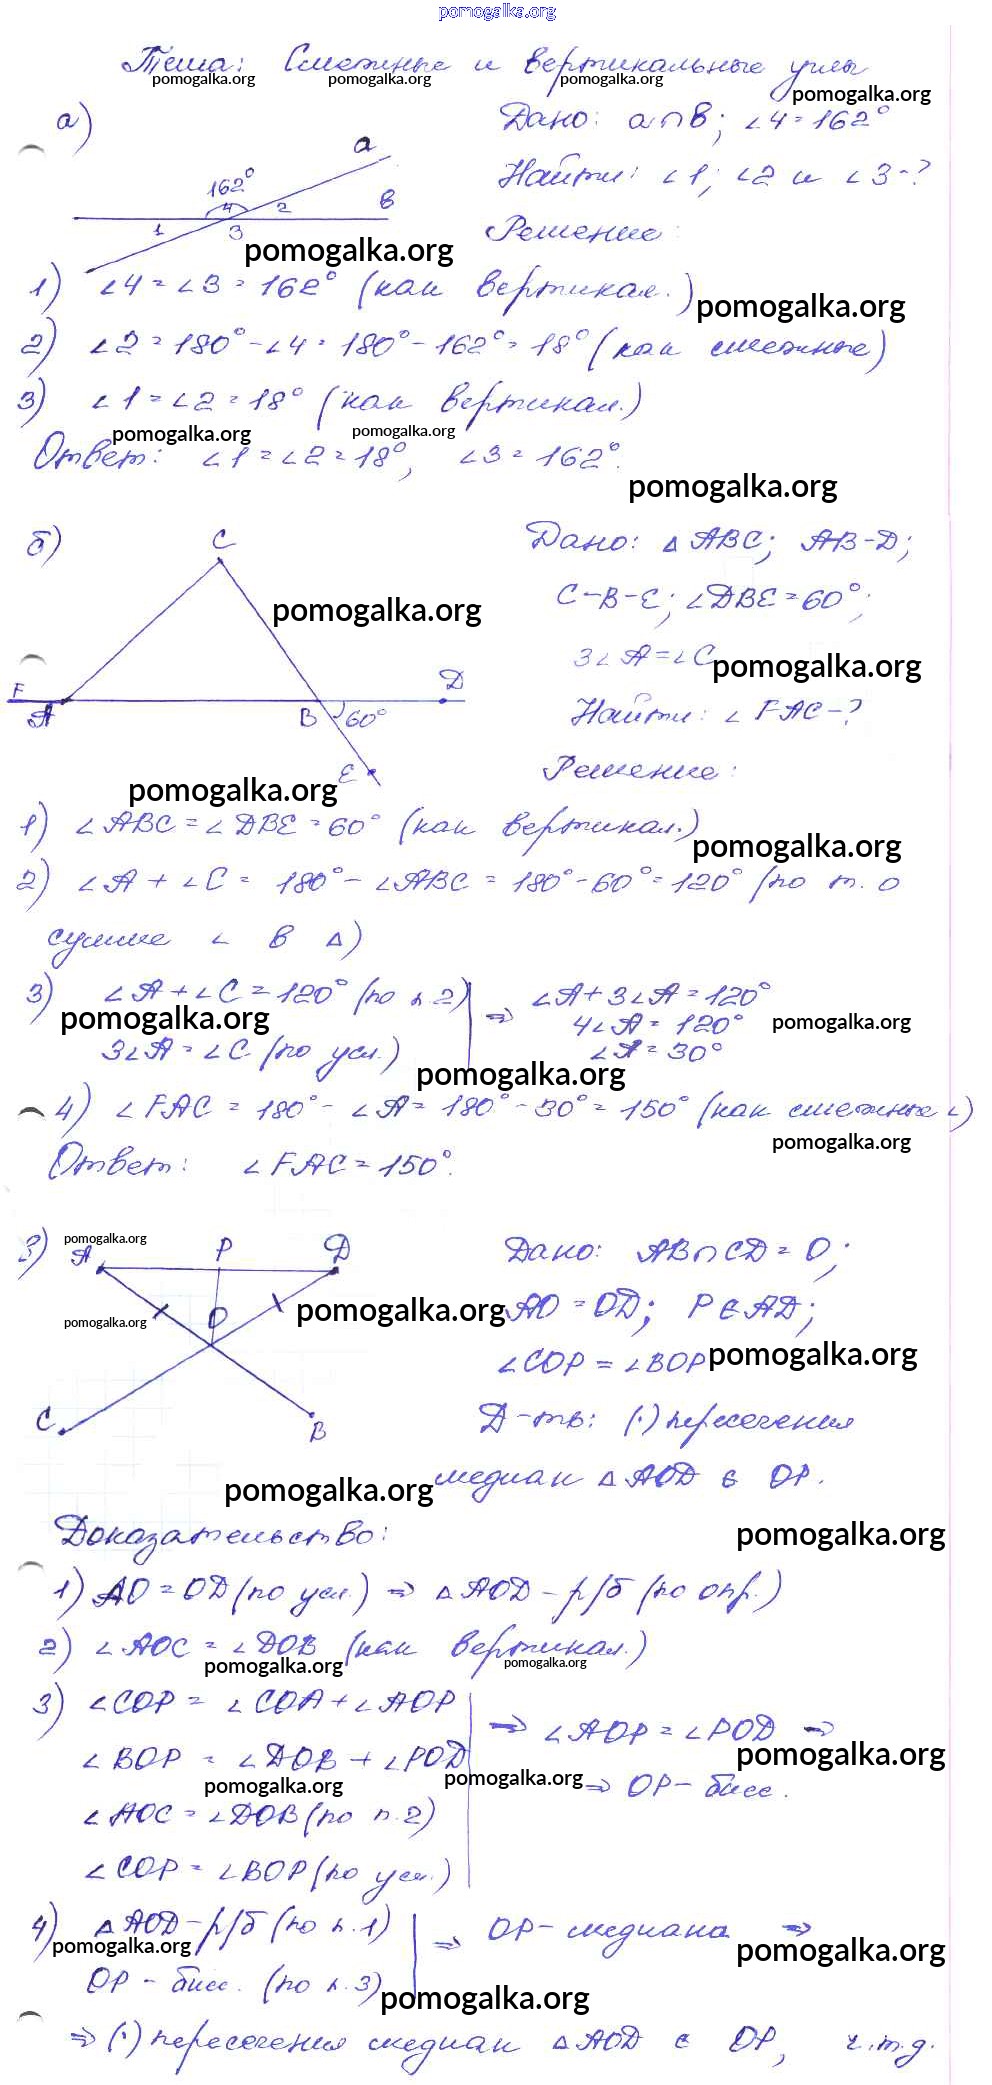 pomogalka.org
Тема: Смежные и вертикальные углы
pomogalka.org pomogalka.org pomogalka.org pomogalka.org
а)
Дано: a∩в; ∠4=162°
a
162°
4 2 в
1 3
Найти: ∠1; ∠2 и ∠3-?
Решение:
pomogalka.org
1) ∠4=∠3=162° (как вертикал.)
pomogalka.org
2) ∠2=180°-∠4=180°-162°=18° (как смежные)
3) ∠1=∠2=18° (как вертикал.)
pomogalka.org pomogalka.org
Ответ: ∠1=∠2=18°, ∠3=162°.
pomogalka.org
б)
C
F A B D
60°
E
Дано: △ABC; AB-D;
C-B-E; ∠DBE=60°;
pomogalka.org
3∠A=∠C
pomogalka.org
Найти: ∠FAC-?
Решение:
pomogalka.org
1) ∠ABC=∠DBE=60° (как вертикал.)
pomogalka.org
2) ∠A+∠C=180°-∠ABC=180°-60°=120° (по т. о
сумме ∠ в △)
3) ∠A+∠C=120° (по п.2) ⇒ ∠A+3∠A=120°
pomogalka.org 4∠A=120° pomogalka.org
3∠A=∠C (по усл.) ∠A=30°
pomogalka.org
4) ∠FAC=180°-∠A=180°-30°=150° (как смежные ∠)
pomogalka.org
Ответ: ∠FAC=150°.
3)
pomogalka.org
A P D
O
C B
pomogalka.org
pomogalka.org
Дано: AB∩CD=O;
AO=OD; P∈AD;
∠COP=∠BOP
pomogalka.org
Д-ть: (·) пересечения
медиан △AOD ∈ OP.
pomogalka.org
Доказательство:
pomogalka.org
1) AO=OD (по усл.) ⇒ △AOD-р/б (по опр.)
2) ∠AOC=∠DOB (как вертикал.)
pomogalka.org pomogalka.org
3) ∠COP=∠COA+∠AOP
⇒ ∠AOP=∠POD ⇒
∠BOP=∠DOB+∠POD
pomogalka.org
pomogalka.org pomogalka.org
⇒ OP-бисс.
∠AOC=∠DOB (по п.2)
∠COP=∠BOP (по усл.)
4) △AOD-р/б (по п.1) ⇒ OP-медиана ⇒
pomogalka.org pomogalka.org
OP-бисс. (по п.3)
pomogalka.org
⇒ (·) пересечения медиан △AOD ∈ OP, ч.т.д.